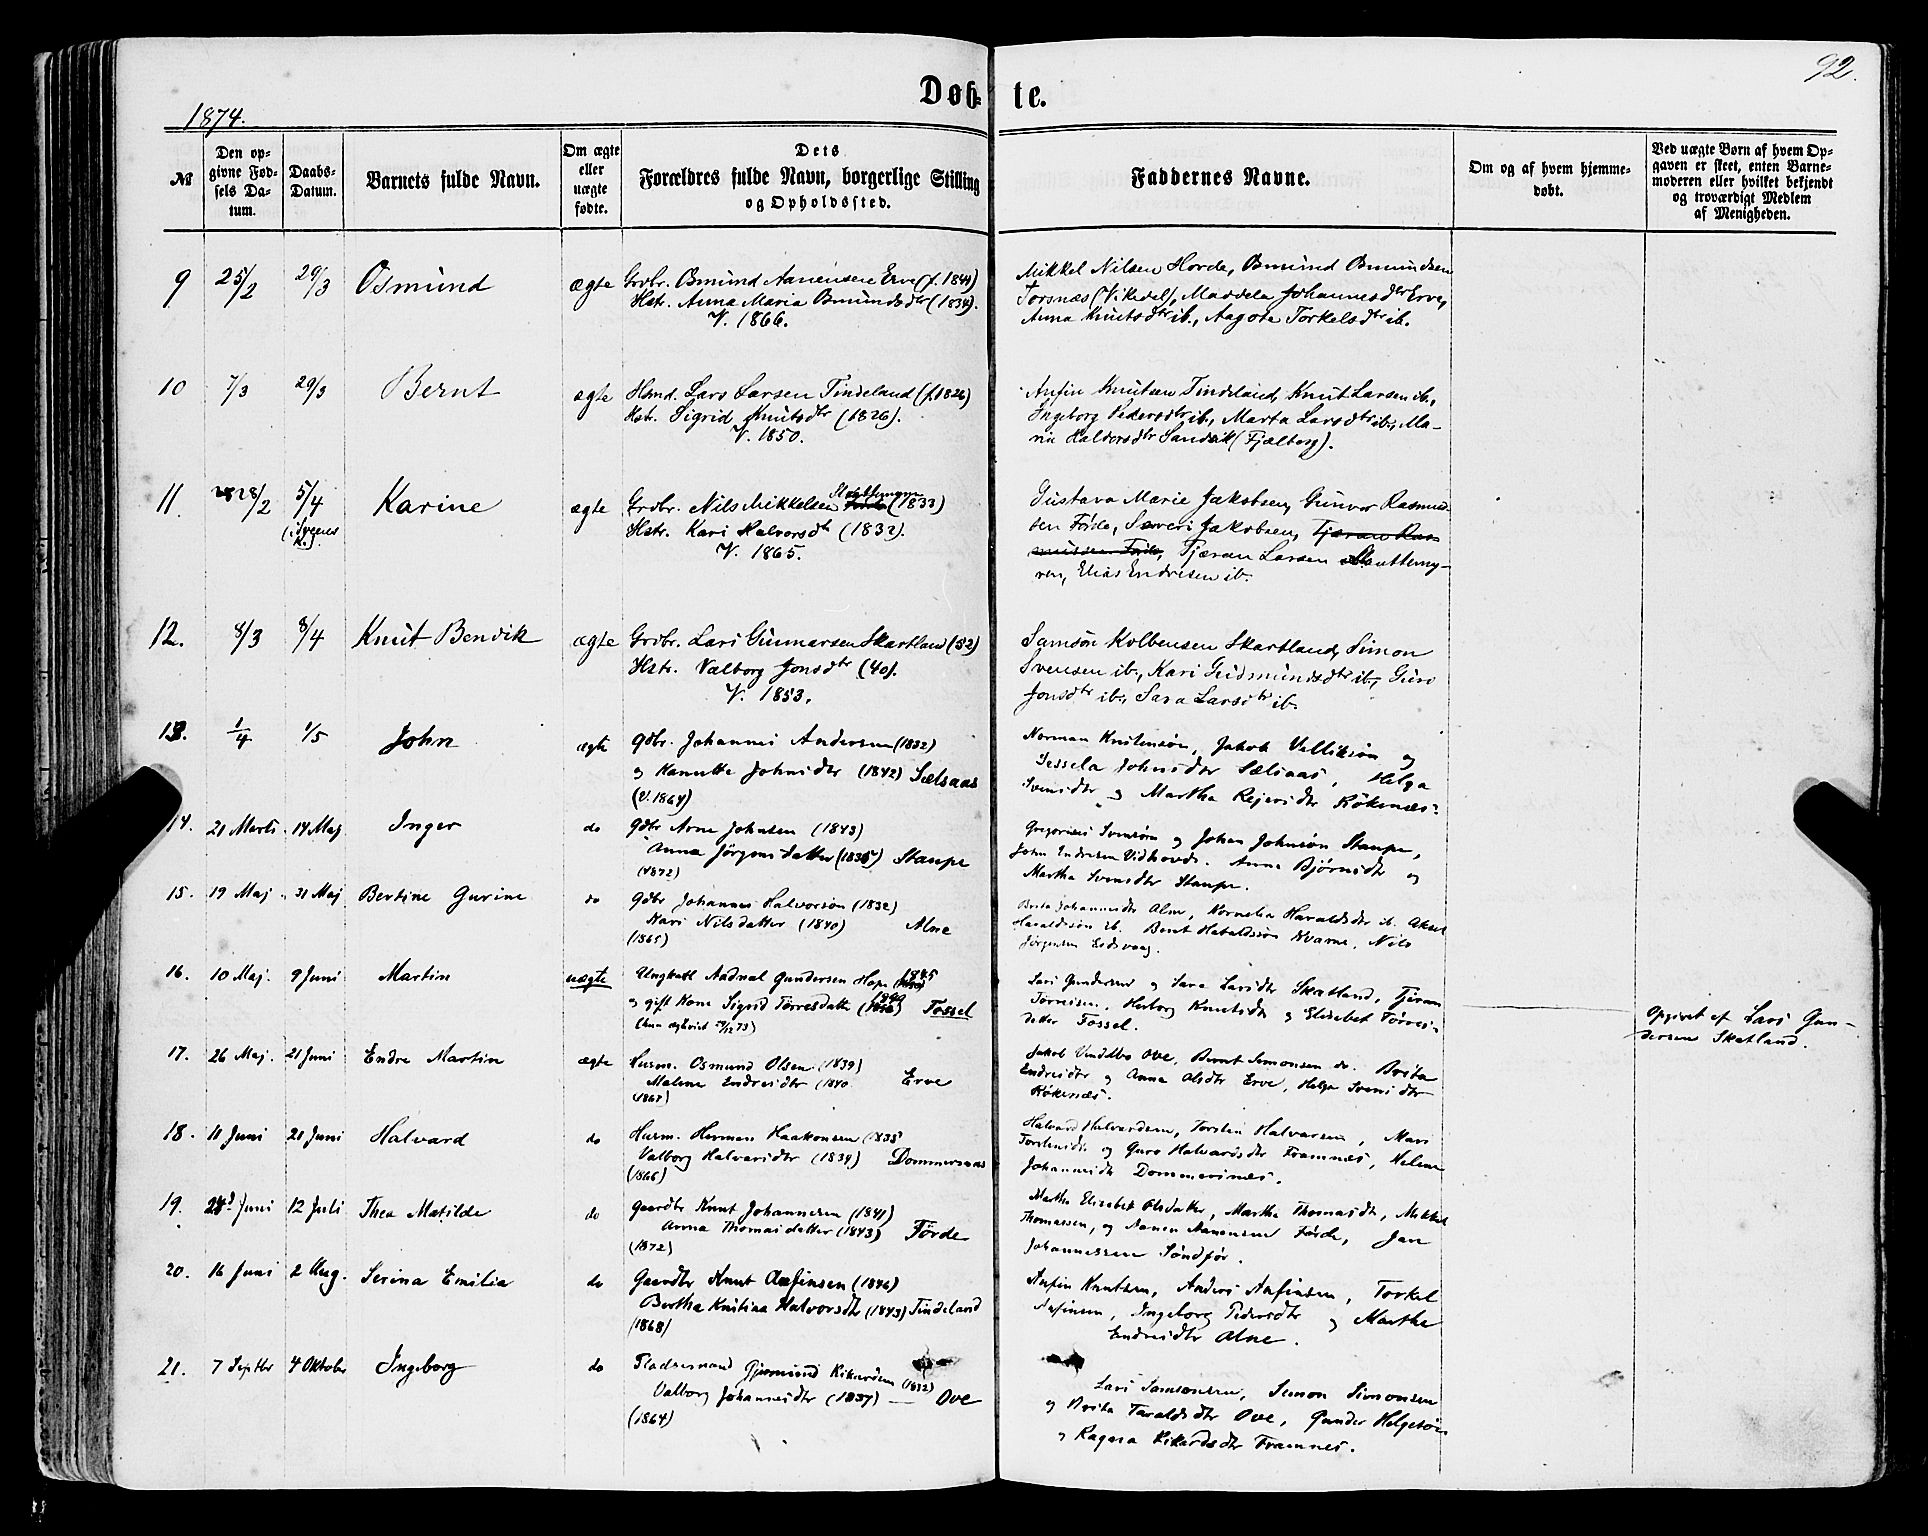 92.
Døb- te.
1874.
№
Den op-
givne Fød-
sels Da-
tum.
Daabs-
Datum.
Barnets fulde Navn.
Om ægte
eller
uægte
fødte.
Dets
Forældres fulde Navn, borgerlige Stilling
og Opholdssted.
Faddernes Navne.
Om og af hvem hjemme-
døbt.
Ved uægte Børn af hvem Op-
gaven er skeet, enten Barne-
moderen eller hvilket bekjendt
og troværdigt Medlem
af Menigheden.
9 25/2 29/3 Osmund ægte
Grdbr. Osmund Aanensen Erve (f. 1844)
Hstr. Anna Maria Osmundsdtr (1834).
V. 1866.
Mikkel Nilsen Horde, Osmund Osmundsen
Torsnæs (Vikedal), Maddela Johannesdtr Erve,
Anna Knutsdtr ib., Aagota Torkelsdtr ib.
10 7/3 29/3 Bernt ægte
Hsmd. Lars Larsen Tindeland (f. 1826)
Hst. Sigrid Knutsdtr (1826).
V. 1850.
Anfin Knutsen Tindeland, Knut Larsen ib.,
Ingeborg Pedersdtr ib., Marta Larsdtr ib., Ma-
ria Haldorsdtr Sandvik (Fjælberg).
11. 28/2 5/4 Karine ægte
Grdbr. Nils Mikkelsen (1833)
Hstr. Kari Halvorsdtr (1832).
V. 1865.
Gustava Marie Jakobsen, Gunvor Rasmus-
sen Førde, Severi Jakobsen, Tjæran Ras-
mussen Førde, Tjæran Larsen Stouttemy-
ren, Elias Endresen ib.
12. 8/3 8/4 Knut Bendik ægte
Grdbr. Lars Gunnarsen Skartland (32)
Hstr. Valborg Jonsdtr (40).
V. 1853.
Samson Kolbensen Skartland, Simon
Svensen ib., Kari Gudmundsdtr ib., Guro
Jonsdtr ib., Sara Larsdtr ib.
13. 1/4 1/5 John ægte
Gdbr. Johannes Andersen (1832)
og Kanutte Johnsdtr (1842) Sælsaas
(V. 1864)
Norman Knutsøn, Jakob og
Sessela Johnsdtr Sælsaas, Helga
Svensdtr og Martha Rejersdtr Røkenæs.
14. 21 Marts 14 Maj Inger do
Gdbr Arne Johnsen (1843)
Anna Jørgensdatter (1835) Staupe
(1872)
Gregorius Svensøn og Johan Johnsøn Staupe,
John Endresen Vidhovde. Anna Bjørnsdtr og
Martha Svensdtr Staupe.
15. 19 Maj 31 Maj Bertine Gurine do
Gdbr Johannes Halvorsøn (1832)
Kari Nilsdatter (1840) Alne
(1865)
Brita Johannesdtr Alne, Kornelia Haraldsdtr ib. Aksel
Haraldsøn ib. Bent Haraldsøn Kvarne, Nils
Jørgensen Eidsvaag.
16. 10 Maj. 9 Juni Martin uægte
Ungkarl Aadnal Gundersen Hope 1845
og gift Kone Sigrid Tørresdatter 1840 Fossel
Lars Gundersen og Sara Larsdtr Skatland, Tjeran
Tørresen, Herborg Knutsdtr og Elisabet Tørres-
datter Fossel.
Opgivet af Lars Gun-
dersen Skatland.
17. 26 Maj. 21 Juni Endre Martin ægte
Husm. Osmund Olsen (1839)
Malene Endresdtr (1840 Erve
(1867)
Jakob Ove, Bernt Simonsen do. Brita
Endresdtr og Anna Olsdtr Erve, Helga Svensdtr
Røkenæs.
18. 11 Juni 21 Juni Halvard do
Husm. Herman Haakonsen (1835
Valborg Halvarsdtr (1834) Dommersnæs
(1866)
Halvard Halvardsen, Torsten Halvarsen, Mari
Torstensdtr og Guro Halvardsdtr Framnes, Helene
Johannesdtr Dommersnæs.
19. 24d Juni 12 Juli Thea Matilde do
Gaardbr Knut Johannesen (1841)
Anna Thomasdatter (1843) Førde
(1872)
Martha Elisabet Olsdatter, Martha Thomasdtr, Mikkel
Thomassen, og Aanen Aanensen Førde, Jan
Johannessen Søndfør.
20. 16 Juni 2 Aug. Serina Emilia do
Gaardbr Knut Anfinsen (1846)
Bertha Kristina Halvorsdtr (1843) Tindeland
(1868)
Anfin Knutsen, Anders Anfinsen, Torkel
Anfinsen, Ingeborg Pedersdtr og Martha
Endresdtr Alne.
21. 7 Septbr 4 Oktober Ingeborg do
Pladsemand Gjermund Rikardsen (1832)
Valborg Johannesdtr (1837) — Ove
(1864)
Lars Samsonsen, Simon Simonsen
og Brita Taraldsdtr Ove, Gunder Helgesøn
og Ragna Rikardsdtr Framnes.